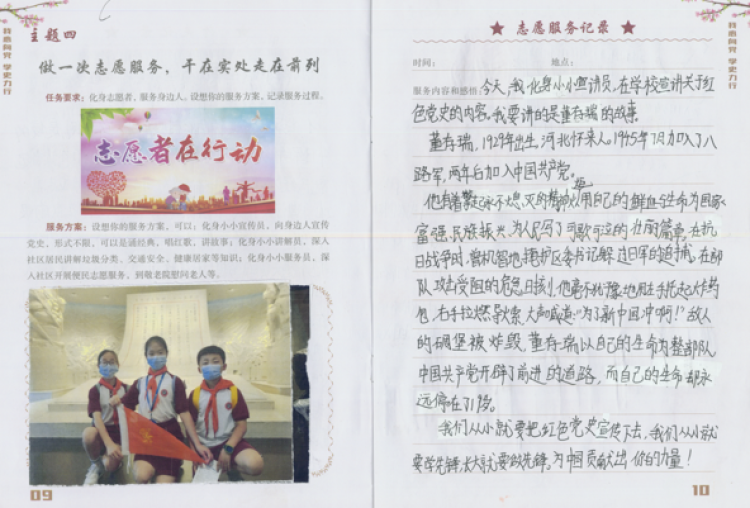 我心向党 学史力行
主题四
做一次志愿服务,干在实处走在前列
任务要求:化身志愿者,服务身边人。设想你的服务方案,记录服务过程。
志愿者在行动
服务方案:设想你的服务方案,可以:化身小小宣传员,向身边人宣传
党史,形式不限,可以是诵经典,唱红歌,讲故事;化身小小讲解员,深入
社区居民讲解垃圾分类、交通安全、健康居家等知识;化身小小服务员,深
入社区开展便民志愿服务,到敬老院慰问老人等。
09
我心向党 学史力行
★ 志愿服务记录 ★
时间: 地点:
服务内容和感悟:今天,我化身小小宣讲员,在学校宣讲关于红
色党史的内容。我要讲的是董存瑞的故事。
董存瑞,1929年出生,河北怀来人。1945年7月加入了八
路军,两年后加入中国共产党。
他有着永不熄灭的精神,用自己的鲜血与生命为国家
富强、民族振兴、为人民写了可歌可泣的壮丽篇章。在抗
日战争时,曾机智地掩护区委书记躲过日军的追捕。在部
队攻击受阻的危急时刻,他毫不犹豫地用左手托起炸药
包,右手拉燃导火索,大声喊道:“为了新中国冲啊!”敌人
的碉堡被炸毁,董存瑞以自己的生命为整部队
中国共产党开辟了前进的道路,而自己的生命却永
远停在了19岁。
我们从小就要把红色党史宣传下去,我们从小就
要学先锋,长大就要做先锋。为中国贡献出你的力量!
10